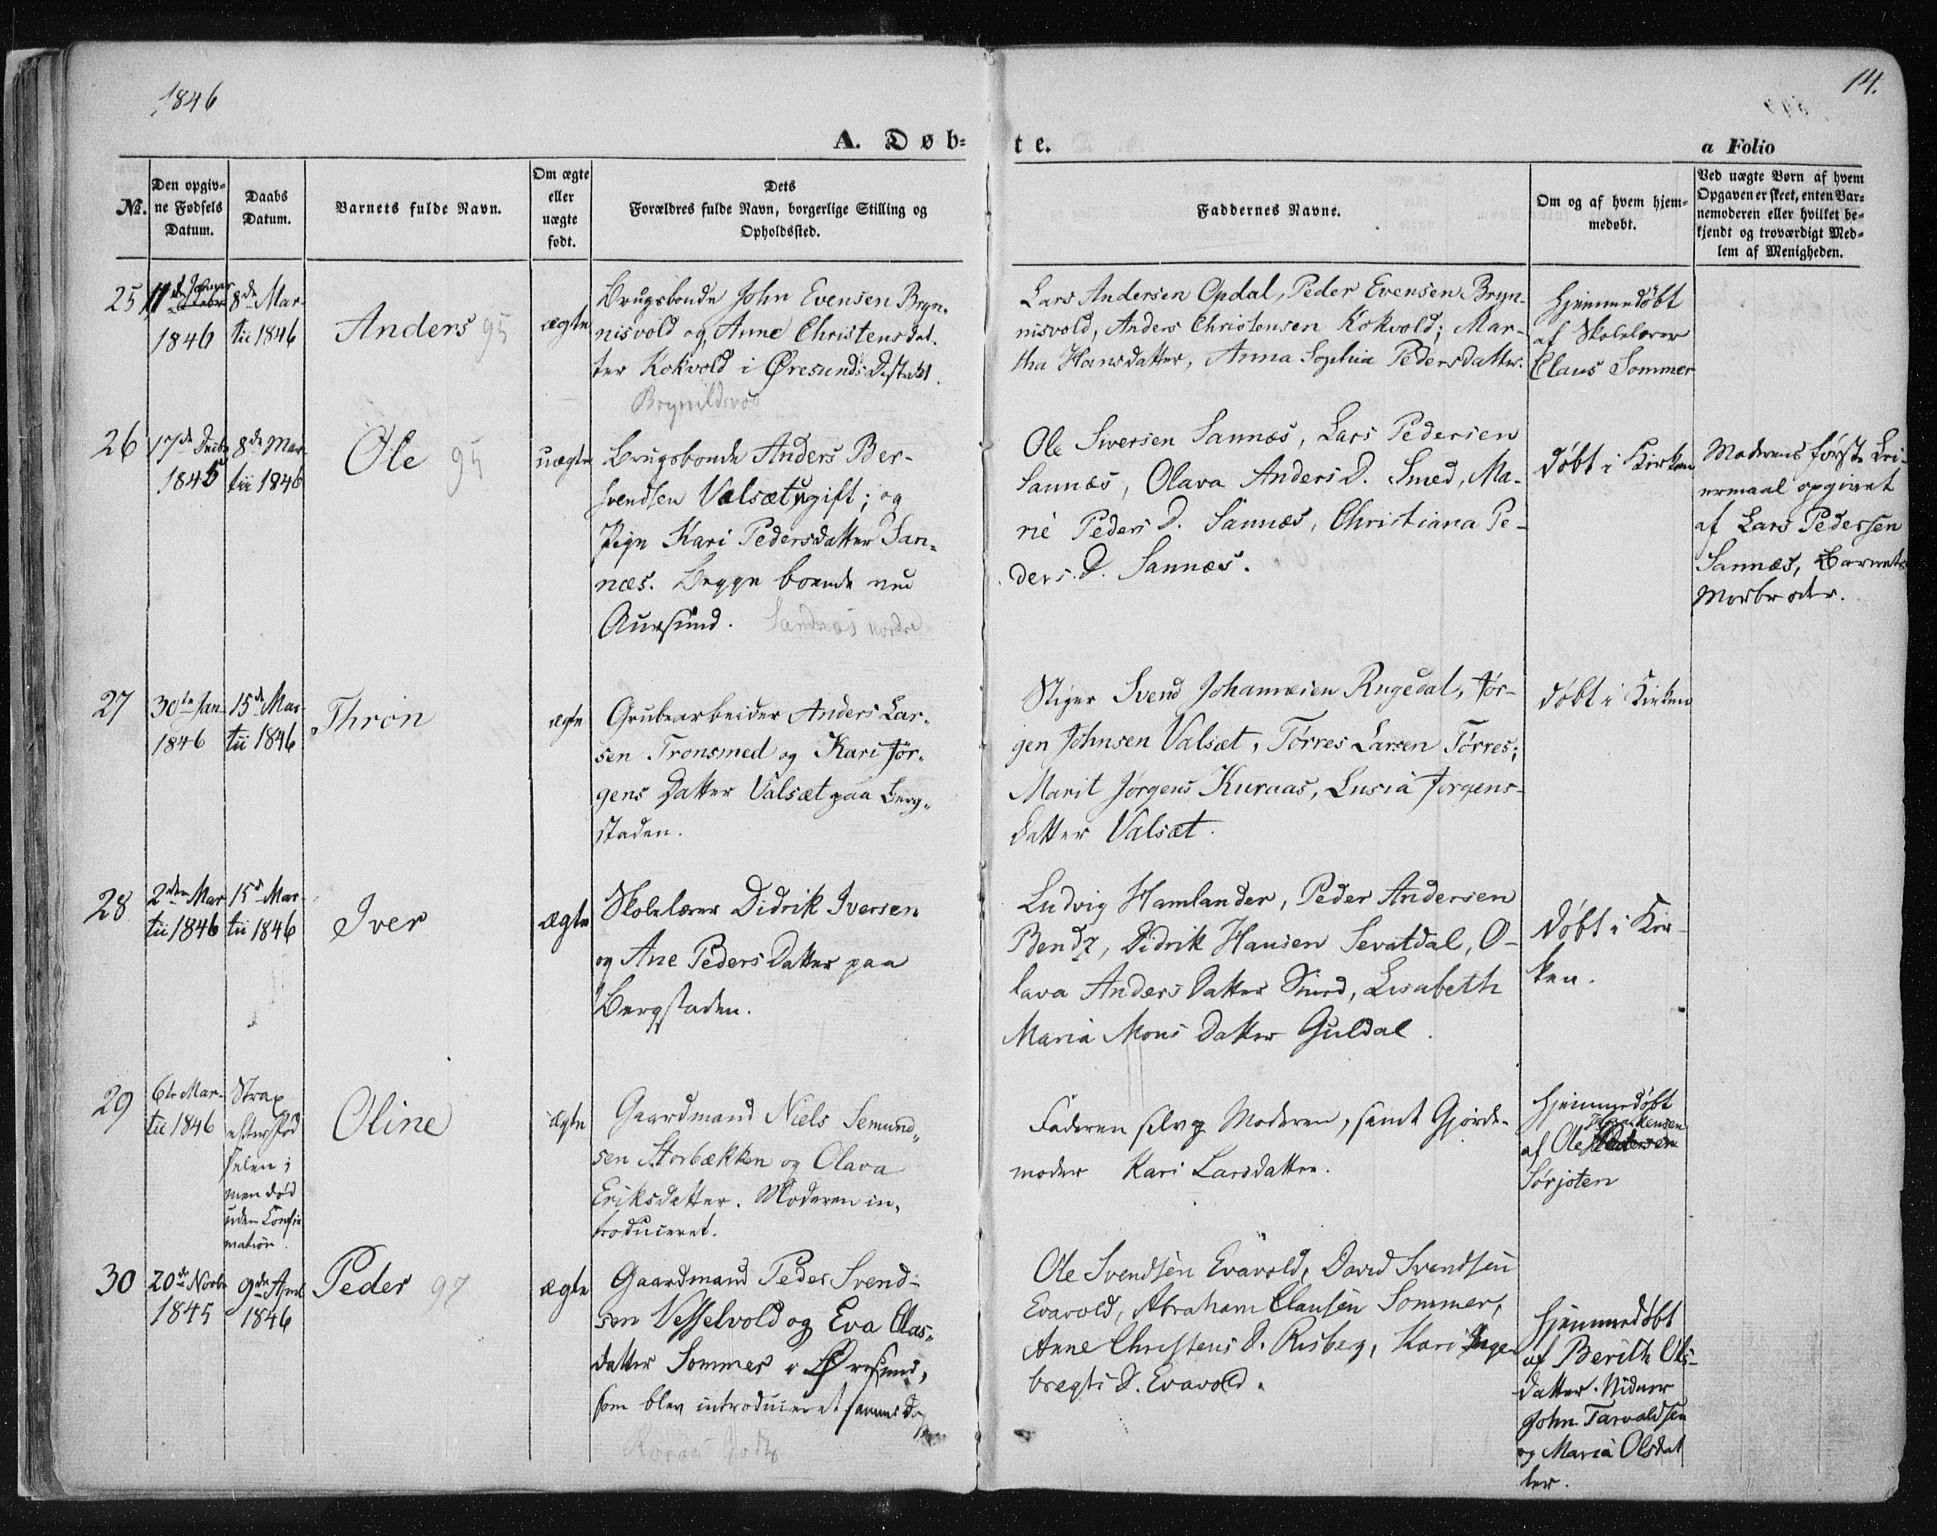 1846
14.
A. Døb-
te.
a Folio
No.
Den opgiv-
ne Fødsels
Datum.
Daabs
Datum.
Barnets fulde Navn.
Om ægte
eller
uægte
født.
Dets
Forældres fulde Navn, borgerlige Stilling og
Opholdssted.
Faddernes Navne.
Om og af hvem hjem-
medøbt.
Ved uægte Børn af hvem
Opgaven er skeet, enten Bar-
nemoderen eller hvilket be-
kjendt og troværdigt Med-
lem af Menigheden.
25
11
1846
8de Mar-
tii 1846
Anders 95
ægte
Brugsbonde John Evensen Bryn-
nisvold og Anne Christensdat-
ter Kokvold i Øresunds
Brynildsvold
Lars Andersen Opdal, Peder Evensen Bryn-
nisvold, Anders Christensen Kokvold; Mar-
tha Hansdatter, Anna Sophia Pedersdatter.
Hjemmedøbt
af Skolelærer
Claus Sommer
26
17de Decbr
1845
8de Mar-
tii 1846
Ole 95
uægte
Brugsbonde Anders Ber-
Svendsen Valsæt, ugift; og
Pige Kari Pedersdatter San-
næs. Begge boende ved
Aursund. Sandnæs nordre
Ole Siversen Sannæs, Lars Pedersen
Sannæs, Olava Anders D. Smed, Ma-
rie Peders D. Sannæs, Christiana Pe-
ders. D. Sannæs.
Døbt i Kirken
Moderens første Lei-
ermaal opgivet
af Lars Pedersen
Sannæs, Barnets
Morbroder.
27
30te Jan
1846
15de Mar-
tii 1846
Thron
ægte
Grubearbeider Anders Lar-
sen Tronsmed og Kari Jør-
gens Datter Valsæt paa Berg-
staden.
Stiger Svend Johannesen Rugedal, Jør-
gen Johnsen Valsæt, Tørres Larsen Tørres;
Marit Jørgens Kuraas, Lusia Jørgens-
datter Valsæt.
Døbt i Kirken
28
2den Mar
tii 1846
15d Mar-
tii 1846
Iver
ægte
Skolelærer Didrik Iversen
og Ane Peders Datter paa
Bergstaden.
Ludvig Hamlander, Peder Andersen
Bendz, Didrik Hansen Sevatdal, O-
lava Anders Datter Smed, Lisabeth
Maria Mons Datter Guldal.
Døbt i Kir-
ken.
29
6te Mar-
tii 1846
Strax
efter Fød
selen;
men død
uden Confir
mation.
Oline
ægte
Gaardmand Niels Semund-
sen Storbækken og Olava
Eriksdatter. Moderen in-
troduceret.
Faderen selv og Moderen, samt Gjorde-
moder Kari Larsdatter.
Hjemmedøbt
af Ole
Sørjoten
30
20de Novbr
1845
9de April
1846
Peder 97
ægte
Gaardmand Peder Svend-
sen Vesselvold og Eva Clas-
datter Sommer i Øresund,
som blev introduceret samme Dag
Ole Svendsen Evavold, David Svendsen
Evavold, Abraham Clausen Sommer,
Anne Christens D. Risberg, Kari Inge-
bregts D. Evavold.
Hjemmedøbt
af Berith Ols-
datter. Vidner
John Tarvaldsen
og Maria Olsdat
ter.